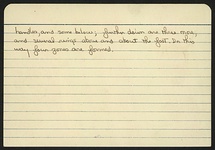 handles, and some below; further down are three rope,
and several rings above and about the foot. In this
way four zones are formed.